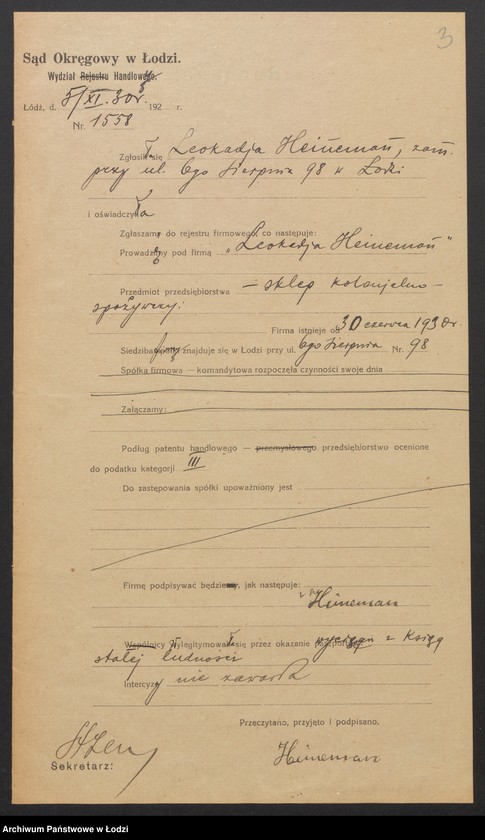 3
Sąd Okręgowy w Łodzi.
Wydział Rejestru Handlowego.
Łódź, d. 5/XI. 30 r. 192 r.
Nr. 1558
Zgłosiła się Leokadja Heineman, zam.
przy ul. 6go Sierpnia 98 w Łodzi
i oświadczyła
Zgłaszam do rejestru firmowego, co następuje:
Prowadzę pod firmą „Leokadja Heineman"
Przedmiot przedsiębiorstwa — sklep kolonjalno-
spożywczy.
Firma istnieje od 30 czerwca 1930 r.
Siedziba firmy znajduje się w Łodzi przy ul. 6go Sierpnia Nr. 98
Spółka firmowa — komandytowa rozpoczęła czynności swoje dnia
Załączamy:
Podług patentu handlowego — przemysłowego przedsiębiorstwo ocenione
do podatku kategorji III
Do zastępowania spółki upoważniony jest
Firmę podpisywać będzie, jak następuje:
Heineman
Wspólnicy wylegitymowała się przez okazanie wyciągu z Ksiąg
stałej ludności
Intercyzy nie zawarła
Przeczytano, przyjęto i podpisano.
Sekretarz:
Heineman
Archiwum Państwowe w Łodzi